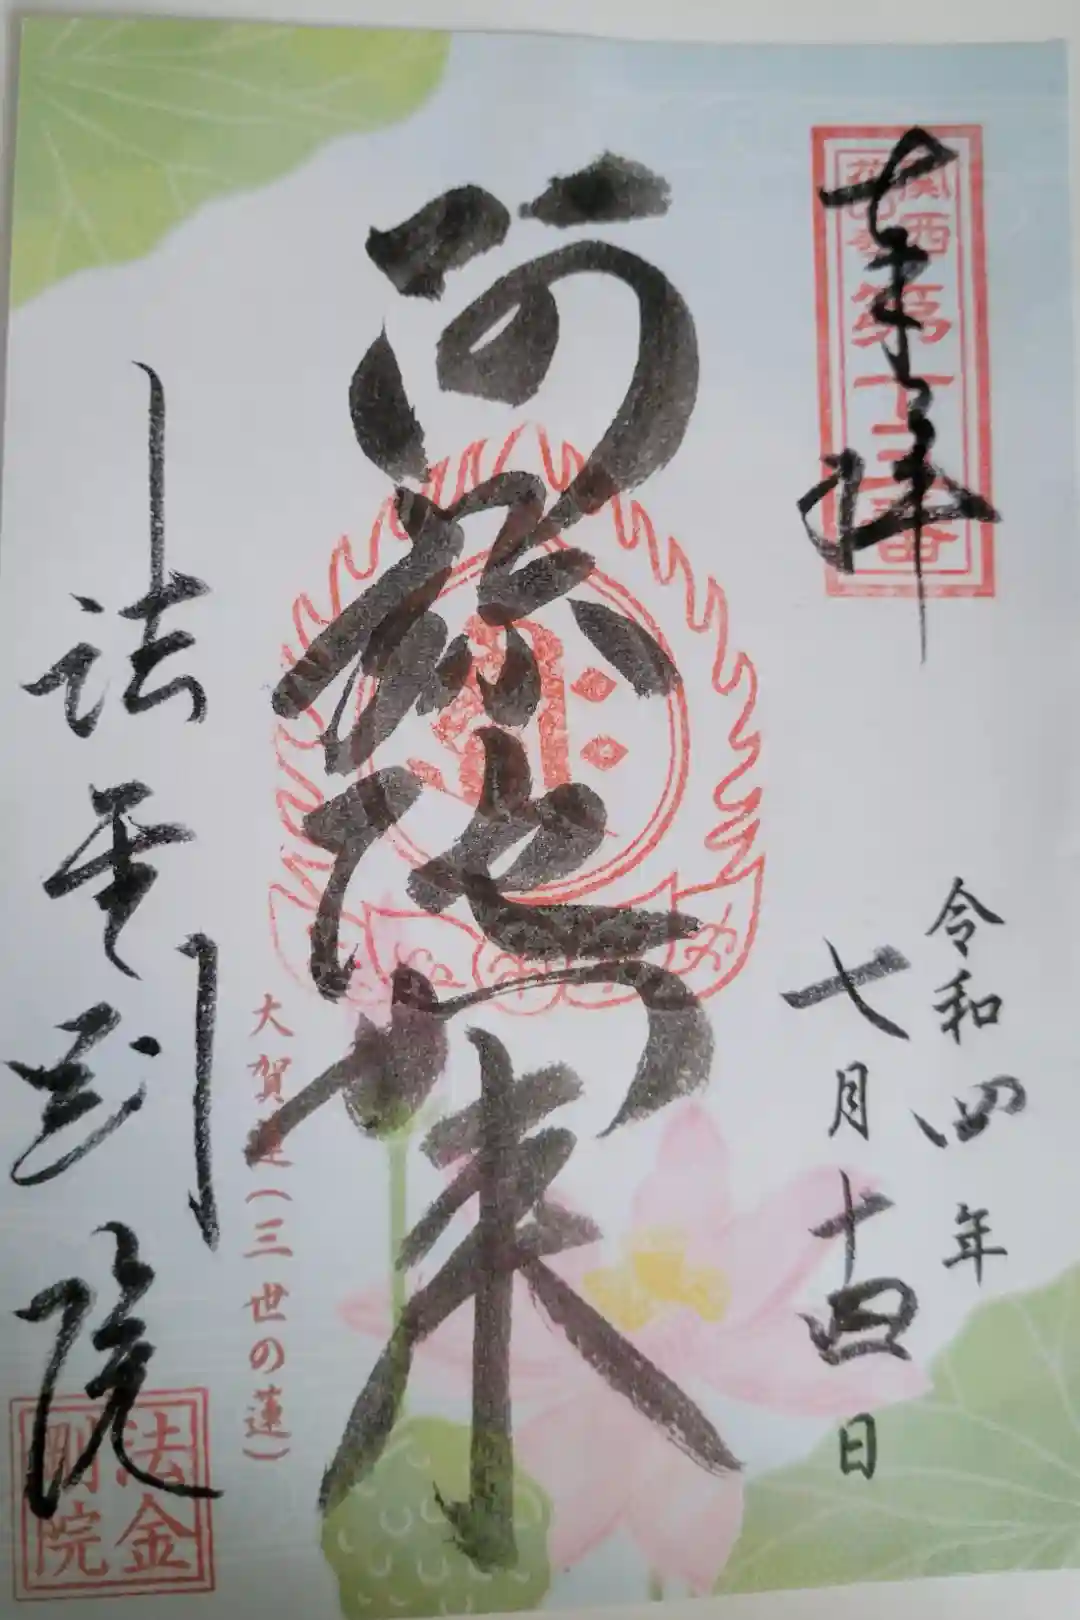 奉拝
関西
花の寺
第十三番
令和四年
七月十四日
阿弥陀如来
大賀蓮(三世の蓮)
法金剛院
法金
剛院